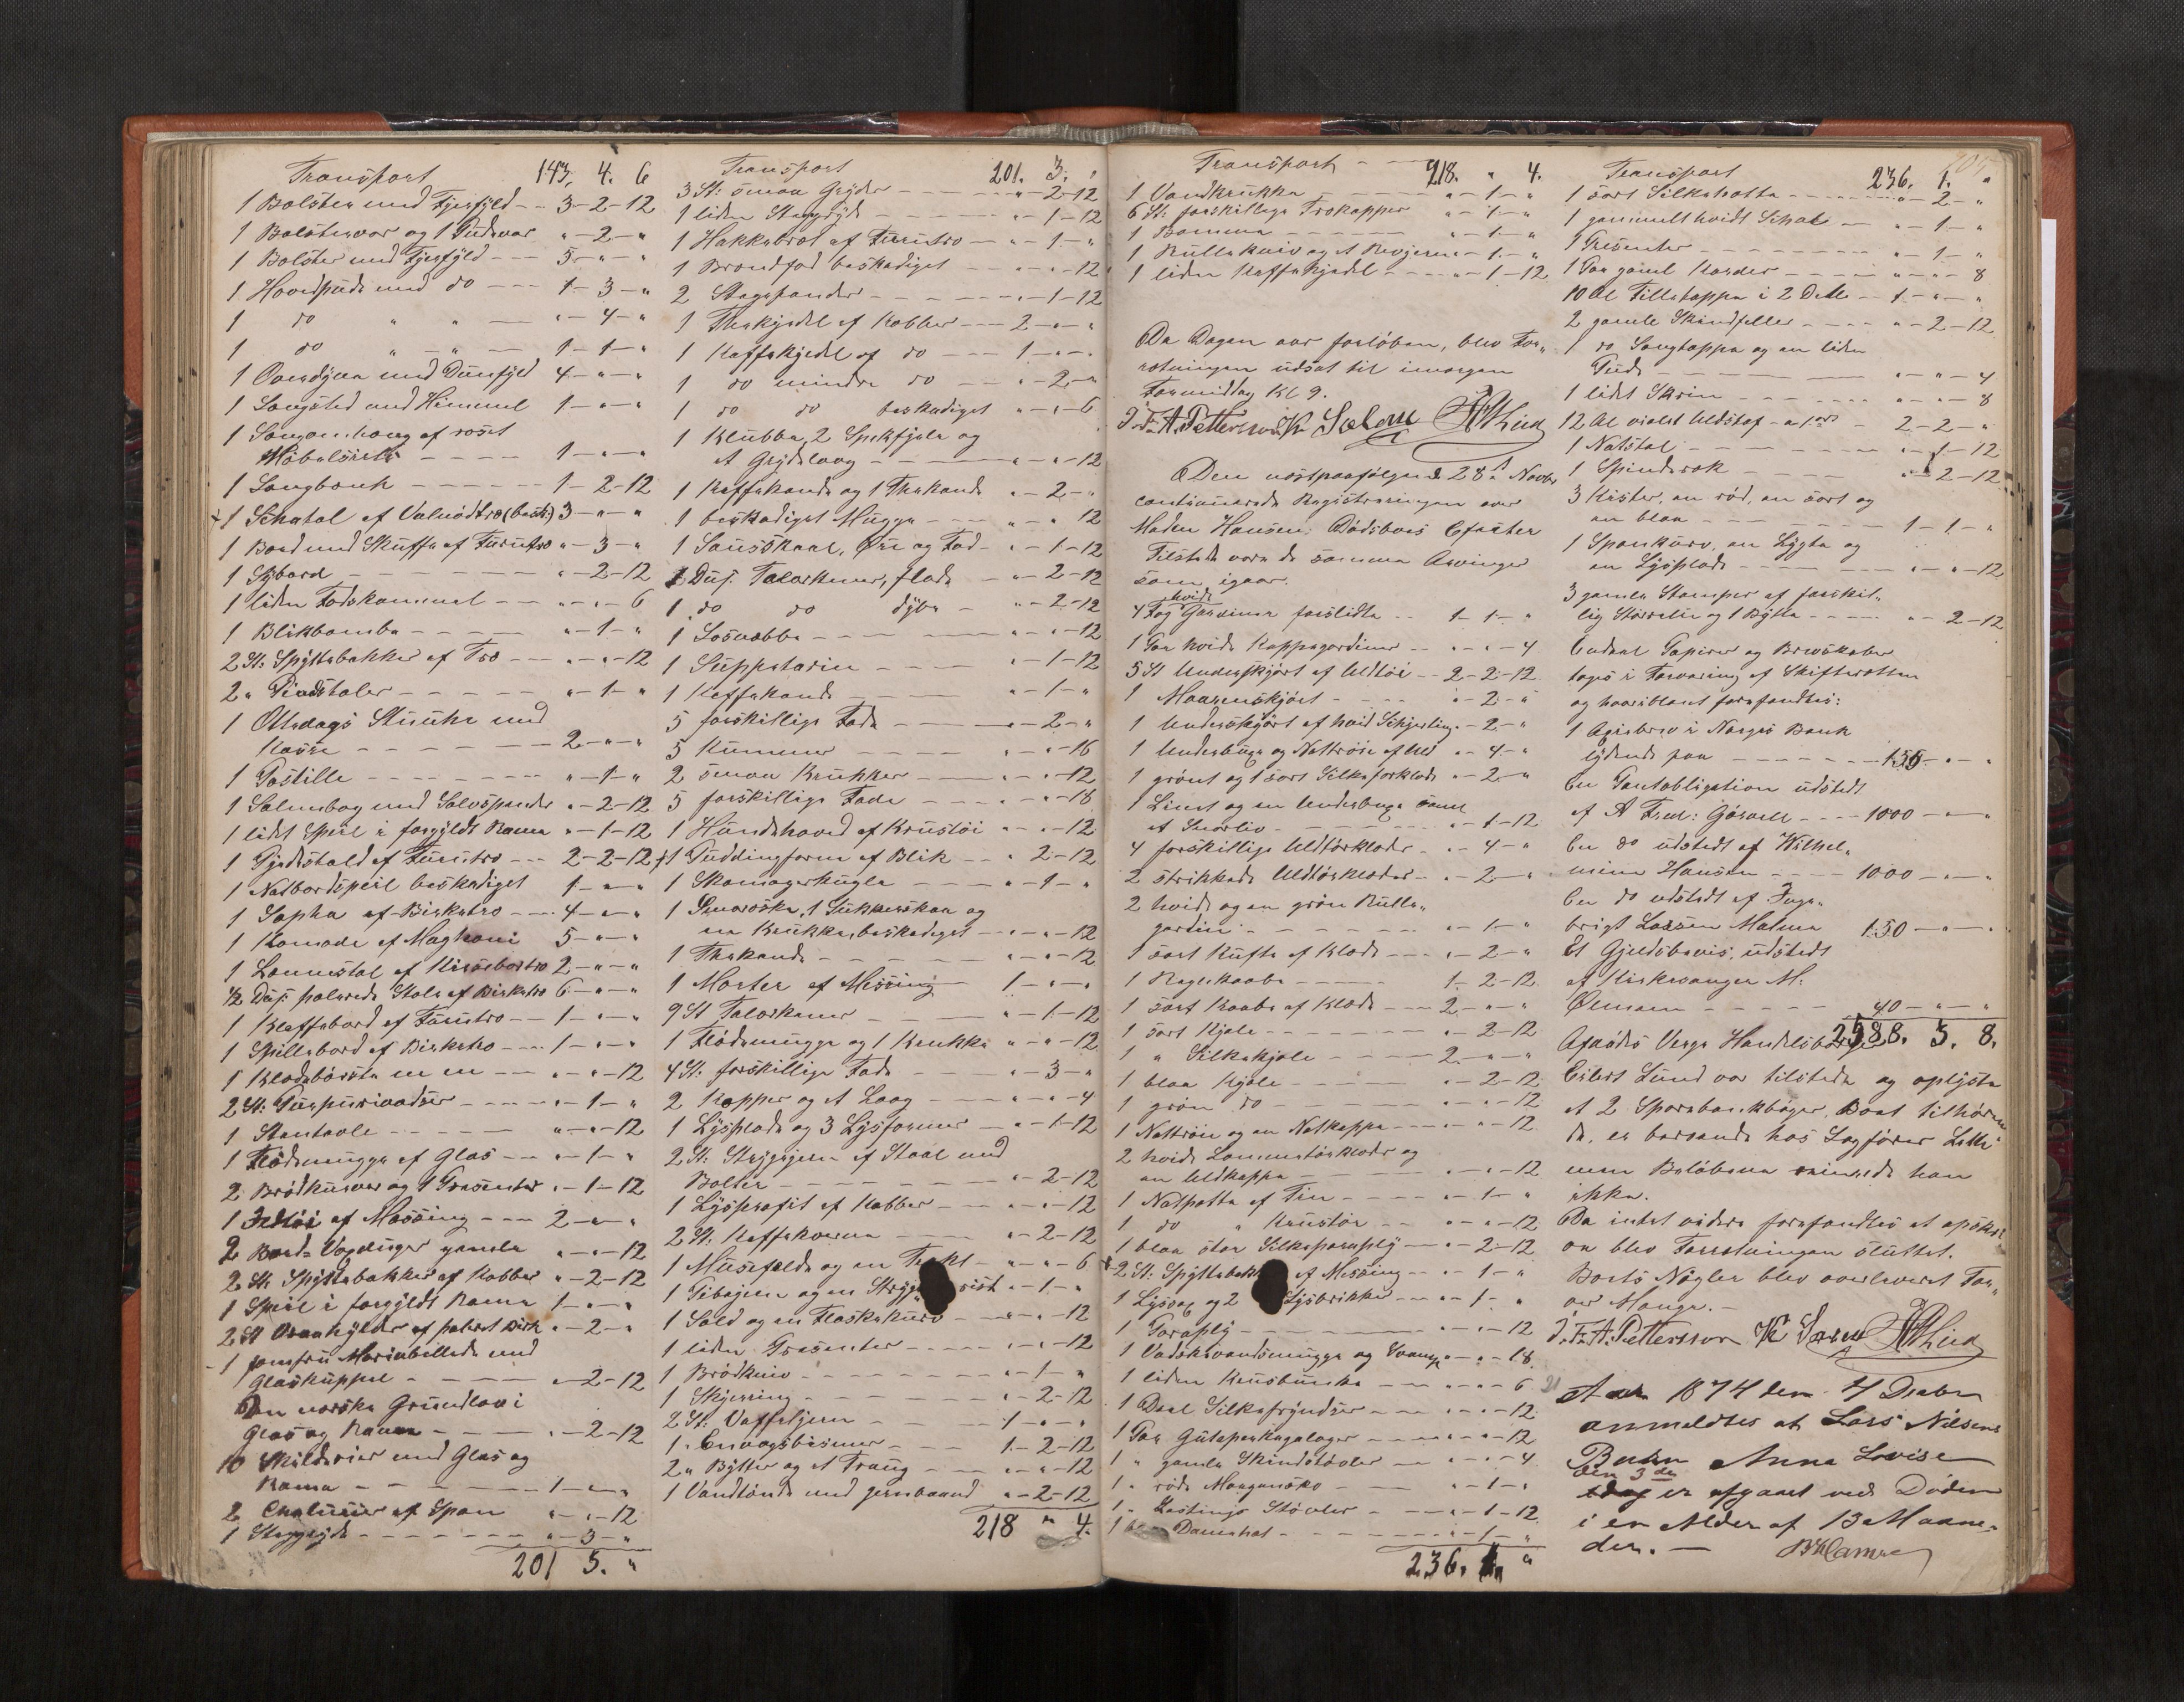 Transport 143. 4. 6
1 Bolster med Fjerfyld - - 3-2-12
1 Bolstervar og 1 Pudevar " - 2 - "
1 Bolster med Fjerfyld - - - 5 - " - "
1 Hovedpude med do - - - 1 - 3 - "
1 do " " - " - 4 - "
1 do " " - 1 - 1 - "
1 Overdyne med Duunfyld 4 - " - "
1 Sengsted med Himmel 1 - " - "
1 Sengomhæng af rosset
Möbelsirts - - - - 1 - " - "
1 Sengbænk - - - - - 1 - 2 - 12
1 Schatol af Valnödtræ (besk:) 3 - " - "
1 Bord med Skuffe af Furutræ " - 3 - "
1 Sybord - - - - " - 2 - 12
1 liden Fodskammel - - " - " - 6
1 Blikbombe - - - - " - 1 - "
2 St: Spyttebakker af Træ - - " - " - 12
2 " Pindstoler - - - - " - 1 - "
1 Ottedags Stuuhr med
Kasse - - - - - 2 - " - "
1 Postille - - - - - " - 1 - "
1 Salmebog med Sølvspænder " - 2 - 12
1 lidet Speil i forgyldt Rame " - 1 - 12
1 Gjedestald af Furutræ - - 2 - 2 - 12
1 Natbordspeil beskadiget 1 - " - "
1 Sopha af Birketræ - - 4 - " - "
1 Komode af Maghoni 5 - " - "
1 Lænnestol af Kirsebærtræ 2 - " - "
1/2 Dus: polerede Stole af Birketræ 6 - " - "
1 Klaffebord af Furutræ - - 1 - " - "
1 Spillebord af Birketræ - - 1 - " - "
1 Klædebörste m m - - " - " - 12
2 St: Purpurivadser - - - " - 1 - "
1 Stentavle - - - - " - " - 12
1 Flödemugge af Glas - - " - 1 - "
2 Brödkurver og 1 Presenter " - 1 - 12
1 Ildtöi af Messing - - - 2 - " - "
2 Bord-Voxduger gamle " - " - 12
2 St: Spyttebakker af Kobber " - 2 - 12
1 Speil i forgyldt Rame 1 - " - "
2 St Vraahylder af poleret Birk " - 2 - "
1 Jomfru Mariebillede med
Glaskuppel - - - - " - 2 - 12
Den norske Grundlov i
Glas og Rame - - - " - 2 - 12
10 Skilderier med Glas og
Rame - - - - 1 - " - "
2 Chatuiier af Spon " - " - 12
1 Steggryde - - - - " - 3 - "
201 5. "
Transport 201. 3. "
3 St: smaa Gryder - - - " - 2 - 12
1 liden Stegryde - - - " - 1 - 12
1 Hakkebret af Furutræ - " - 1 - "
1 Brændfad beskadiget " - " - 12
2 Stegepander - - - - " - 1 - 12
1 Thekjedel af Kobber - - 2 - " - "
1 Kaffekjedel af do - - 1 - " - "
1 do mindre do - - " - 2 - "
1 do do beskadiget " - " - 6
1 Klubbe, 2 Spekfjele og
et Grydelaag - - " - " - 12
1 Kaffekande og 1 Thekande " - 2 - "
1 beskadiget Mugge - - " - " - 12
1 Sausskaal, Öse og Fad - " - 1 - 12
1 Dus. Talerkener, flade - " - 2 - 12
1 do do dybe - " - 2 - 12
1 Sosnebbe - - - " - " - 12
1 Suppeterin - - - " - 1 - 12
1 Kaffekande - - - " - 1 - "
5 forskillige Fade - - " - 2 - "
5 Kummer - - - " - " - 16
2 smaa Krukker - - " - " - 12
5 forskillige Fade - - " - " - 18
1 Hundehoved af Krustöi " - " - 12
1 Puddingform af Blik - - " 2 - 12
1 Skomagerkugle - - " - 1 - "
1 Smöræske, 1 Sukkerskaa og
en Krukke, beskadiget - - " - " - 12
1 Thekande - - - " - " - 12
1 Morter af Messing 1 - " - "
9 St Talerkener - - - " - 1 - 12
1 Flödemugge og 1 Krukke " - " - 12
4 St: forskillige Fade - - " - 3 - "
2 Kopper og et Laag - - " - " - 4
1 Lysplade og 3 Lysformer - " - 1 - 12
2 St: Strygejern af Staal med
Bolter - - - - " - 2 - 12
1 Lysprofit af Kobber - - " - " - 12
2 St: Kaffekværne - - " - 2 - 12
1 Musefælde og en Trakt - " - " - 6
1 Pibejern og en Stryge rist " - 1 - "
1 Sold og en Flaskekurv - " - " - 12
1 liden Presenter - - - " - " - 12
1 Brödkniv - - - - " - 1 - "
1 Skjerring - - - - " - 2 - 12
2 St: Vaffeljern - - - 1 - " - "
1 " Envogsbismer - - 1 - 2 - 12
2 " Bytter og et Traug - - " - " - 12
1 Vandtönde med Jernbaand " - 2 - 12
218 " 4.
Transport - - 218. " 4.
1 Vandkrukke - - - " - 1 - "
6 St. forskillige Trækopper " - 1 - "
1 Bomme - - - - " - 1 - "
1 Rullekniv og et Revjern " - 1 - "
1 liden Kaffekjedel - - - " - 1 - 12
Da Dagen var forlöben, blev For-
retningen udsat til imorgen
Formiddag Kl 9.
J. Fr. A. Petterson K Salem
Den næstpaafölgende 28de Novbr
continuerede Registreringen over
Maden Hansens Dödsboes Effecter
Tilstede vare de samme Arvinger
som igaar.
4 Fag hvide Gardiner forslidte - - 1 - 1 - "
1 Par hvide Kappegardiner - - " - " - 4
5 St Underskjört af Uldtöi - - 2 - 2 - 12
1 Moarenskjört - - - " - 2 - "
1 Underskjört af hvid Schjerting " - 2 - "
1 Underbuxe og Nattröie af Uld " - 4 - "
1 grönt og 1 sort Silkeforklæde " - 2 - "
1 Linet og en Underbuxe samt
et Snorliv - - - - " - 1 - 12
4 forskillige Uldtörklæder - " - 4 - "
2 strikkede Uldtörklæder - " - 2 - "
2 hvide og en grön Rulle-
gardin - - - - - " - 1 - "
1 sort Kufte af Klæde - - " - 2 - "
1 Regnkaabe - - - 1 - 2 - 12
1 sort Kaabe af Klæde - - 2 - " - "
1 sort Kjole - - - - " - 2 - 12
1 " Silkekjole - - - 2 - " - "
1 blaa Kjole - - - " - 2 - 12
1 grön do - - - " - " - 12
1 Nattröie og en Natkappe - - " - " - 12
2 hvide Lommetörklæder og
en Uldkappe - - - " - " - 12
1 Natpotte af Tin - - - " - 1 - "
1 do " Krustöi - - " - " - 12
1 blaa stor Silkeparaply - " - 2 - 12
2 St: Spyttebakk af Messing - - " - 1 - "
1 Lyssax og 2 Lysbrikker - - " - 1 - "
1 Paraply - - - - " - " - 12
1 Vadskevandsmugge og Svamp - " - " - 18
1 liden Krusbunke - - " - " - 6
1 Deel Silkefryndser - - " - " - 12
1 Par Gutaperkagaloger - - " - " - 12
1 " gamle Skindstövler - - " - " - 4
1 " röde Morgensko - - " - 1 - "
1 " Lastings Stövler - - " - 1 - 12
1 Damehat - - - - " - 1 - "
236. 1. "
Transport 236. 1. "
1 sort Silkehatte - - - " - 2 - "
1 gammelt hvidt Schal - - " - 1 - "
1 Presenter - - - - " - 1 - "
1 Par gaml Karder - - - " - " - 8
10 Al Filletæppe i 2 Dele - - 1 - " - "
2 gamle Skindfeller - - - " - 2 - 12
1 do Sengtæppe og en liden
Pude - - - - " - " - 4
1 lidet Skrin - - - - " - " - 8
12 Al violet Uldstof - a 1 ort - 2 - 2 - "
1 Natstol - - - - " - 1 - 12
1 Spinderok - - - - " - 2 - 12
3 Kister, en röd, en sort og
en blaa - - - - - 1 - 1 - "
1 Sponkurv, en Lygte og
en Lysplade - - - - " - " - 12
3 gamle Stamper af forskil-
lig Störrelse og 1 Bytte - - " - 2 - 12
Endeel Papirer og Brevskaber
toges i Forvaring af Skifteretten
og hvoriblant forefandtes:
1 Actiebrev i Norges Bank
lydende paa - - - - 150 - " - "
En Pantobligation udstedt
af A Fred: Görvell - - - 1000 - " - "
En do udstedt af Wilhel-
mine Hansen - - - 1000 - " - "
En do udstedt af Inge-
brigt Larsen Malmen 150 - " - "
Et Gjeldsbevis, udstedt
af Kirkesanger M:
Ölmann - - - - 40 - " - "
2588. 3. 8.
Afdödes Verge Handelsborger
Eilert Lund var tilstede og oplyste
at 2 Sparebankböger, Boet tilhören
de, er beroende hos Sagförer Lethe
men Belöbene erindrede han
ikke.
Da intet videre forefandtes at opskri
ve blev Forretningen sluttet.
Boets Nögler blev overleveret For-
ver Mange. -
J. Fr. A. Pettersson K Salem
Aar 1874 den 4 Decbr
anmeldtes at Lars Nilsens
Barn Anna Lovise
den 3de
idag er afgaaet ved Döden
i en Alder af 13 Maane-
der. -